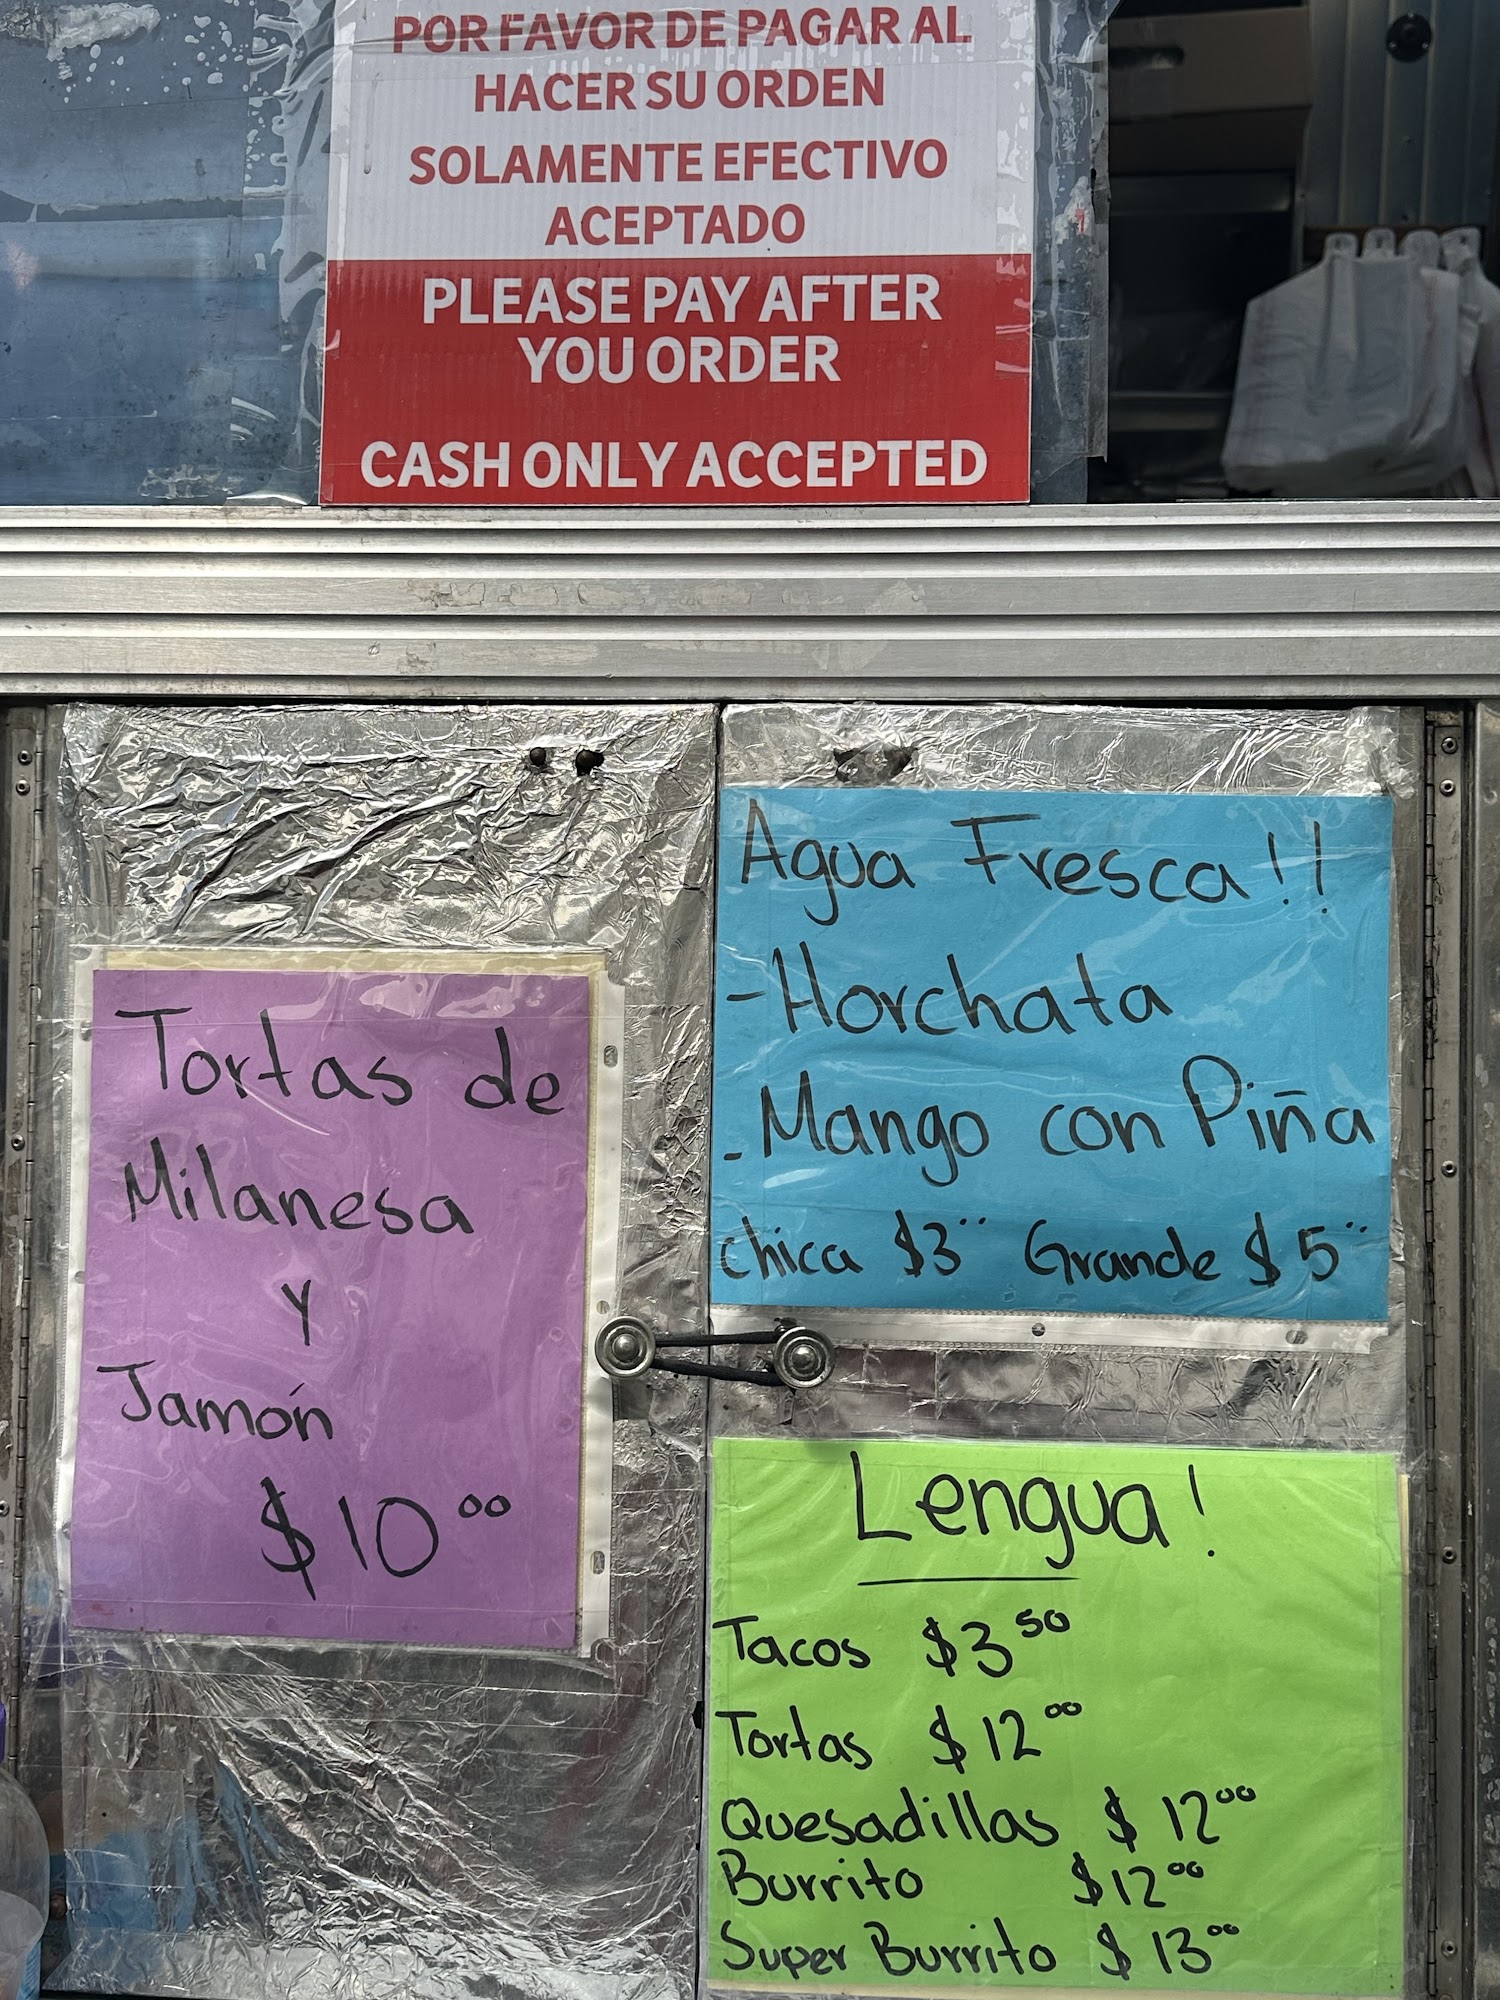 POR FAVOR DE PAGAR AL
HACER SU ORDEN
SOLAMENTE EFECTIVO
ACEPTADO
PLEASE PAY AFTER
YOU ORDER
CASH ONLY ACCEPTED
Agua Fresca!!
-Horchata
-Mango con Piña
chica $3.. Grande $5..
Tortas de
Milanesa
y
Jamón
$10.00
Lengua!
Tacos $3.50
Tortas $12.00
Quesadillas $12.00
Burrito $12.00
Super Burrito $13.00